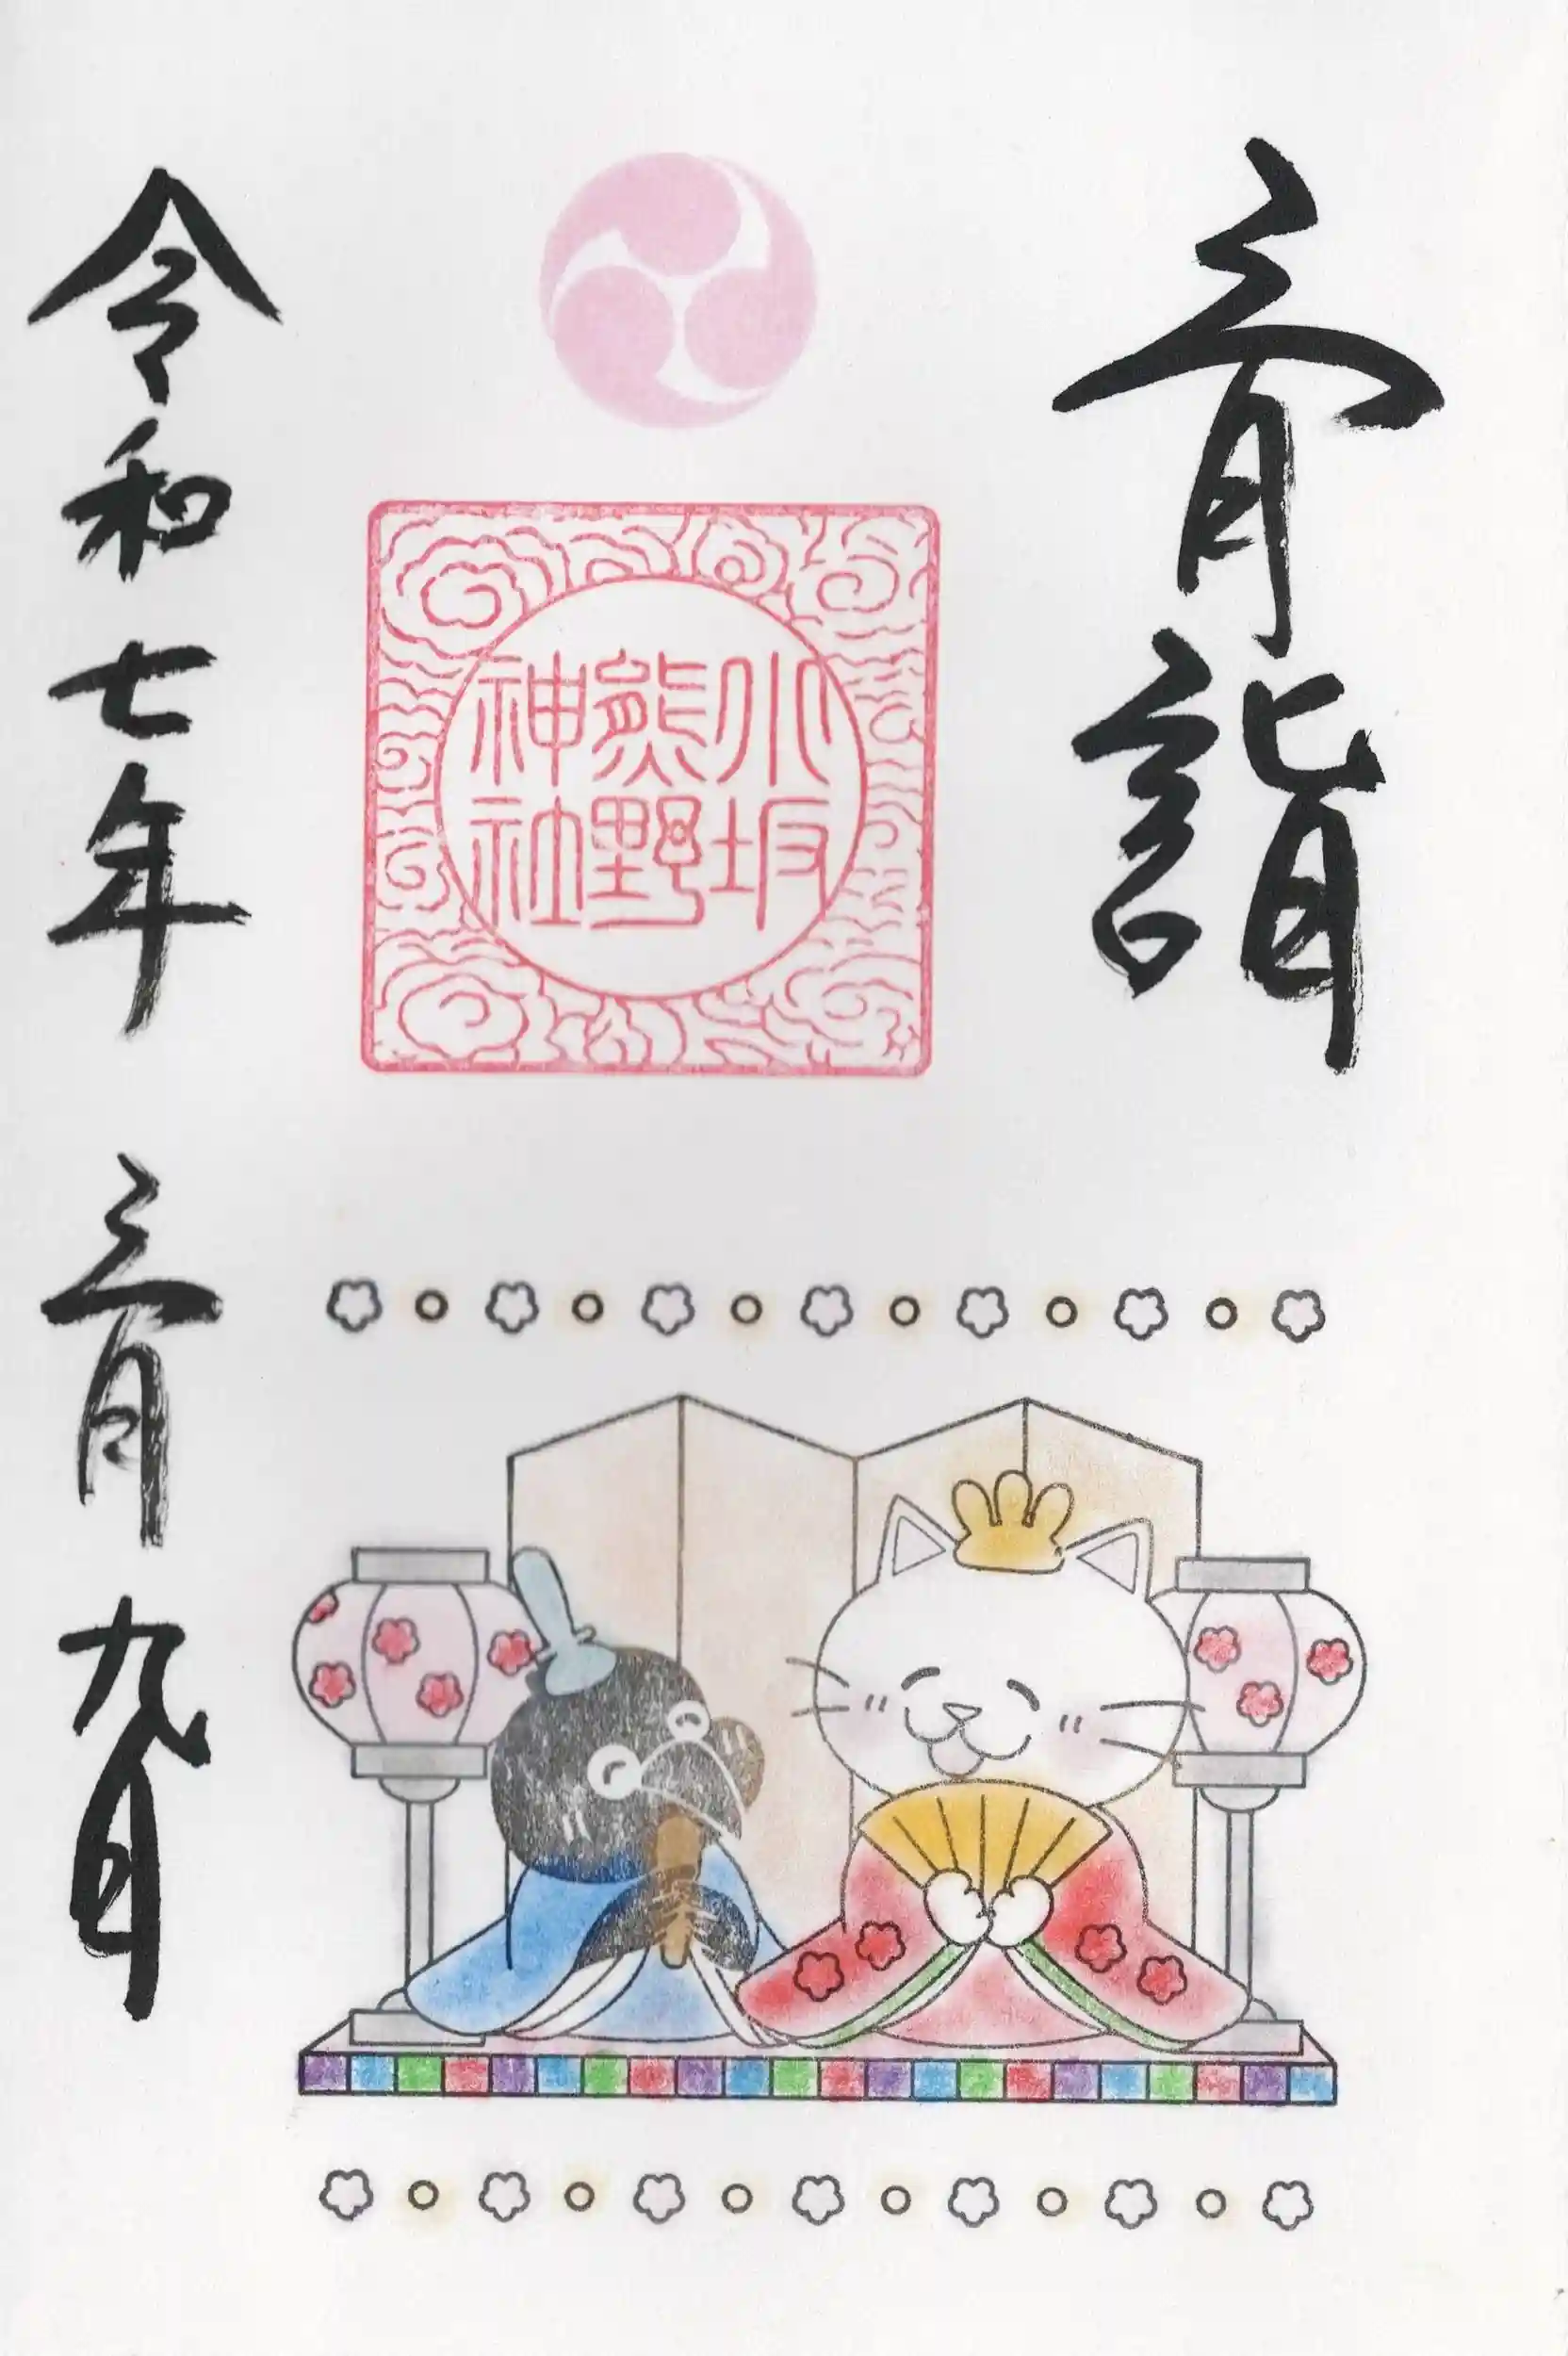 三月詣
小坂
熊野
神社
令和七年 三月九日